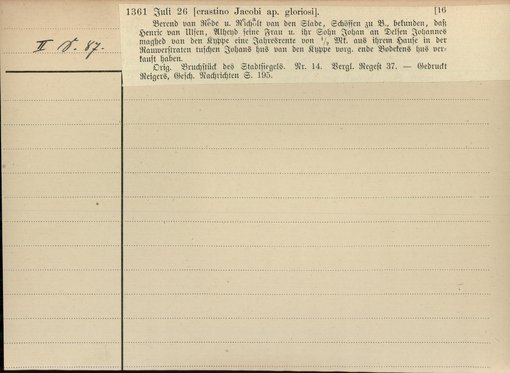 1361 Juli 26 [crastino Jacobi ap. gloriosi]. [16
Berend van Rode u. Richolt van den Slade, Schöffen zu B., bekunden, daß
Henric van Ulsen, Alheyd seine Frau u. ihr Sohn Johan an Delsen Johannes
maghed van den Kyppe eine Jahresrente von 1/2 Mk. aus ihrem Hause in der
Nauwerstraten tuschen Johans hus van den Kyppe vorg. ende Bodekens hus ver-
kauft haben.
Orig. Bruchstück des Stadtsiegels. Nr. 14. Vergl. Regest 37. — Gedruckt
Reigers, Gesch. Nachrichten S. 195.
II S. 87.